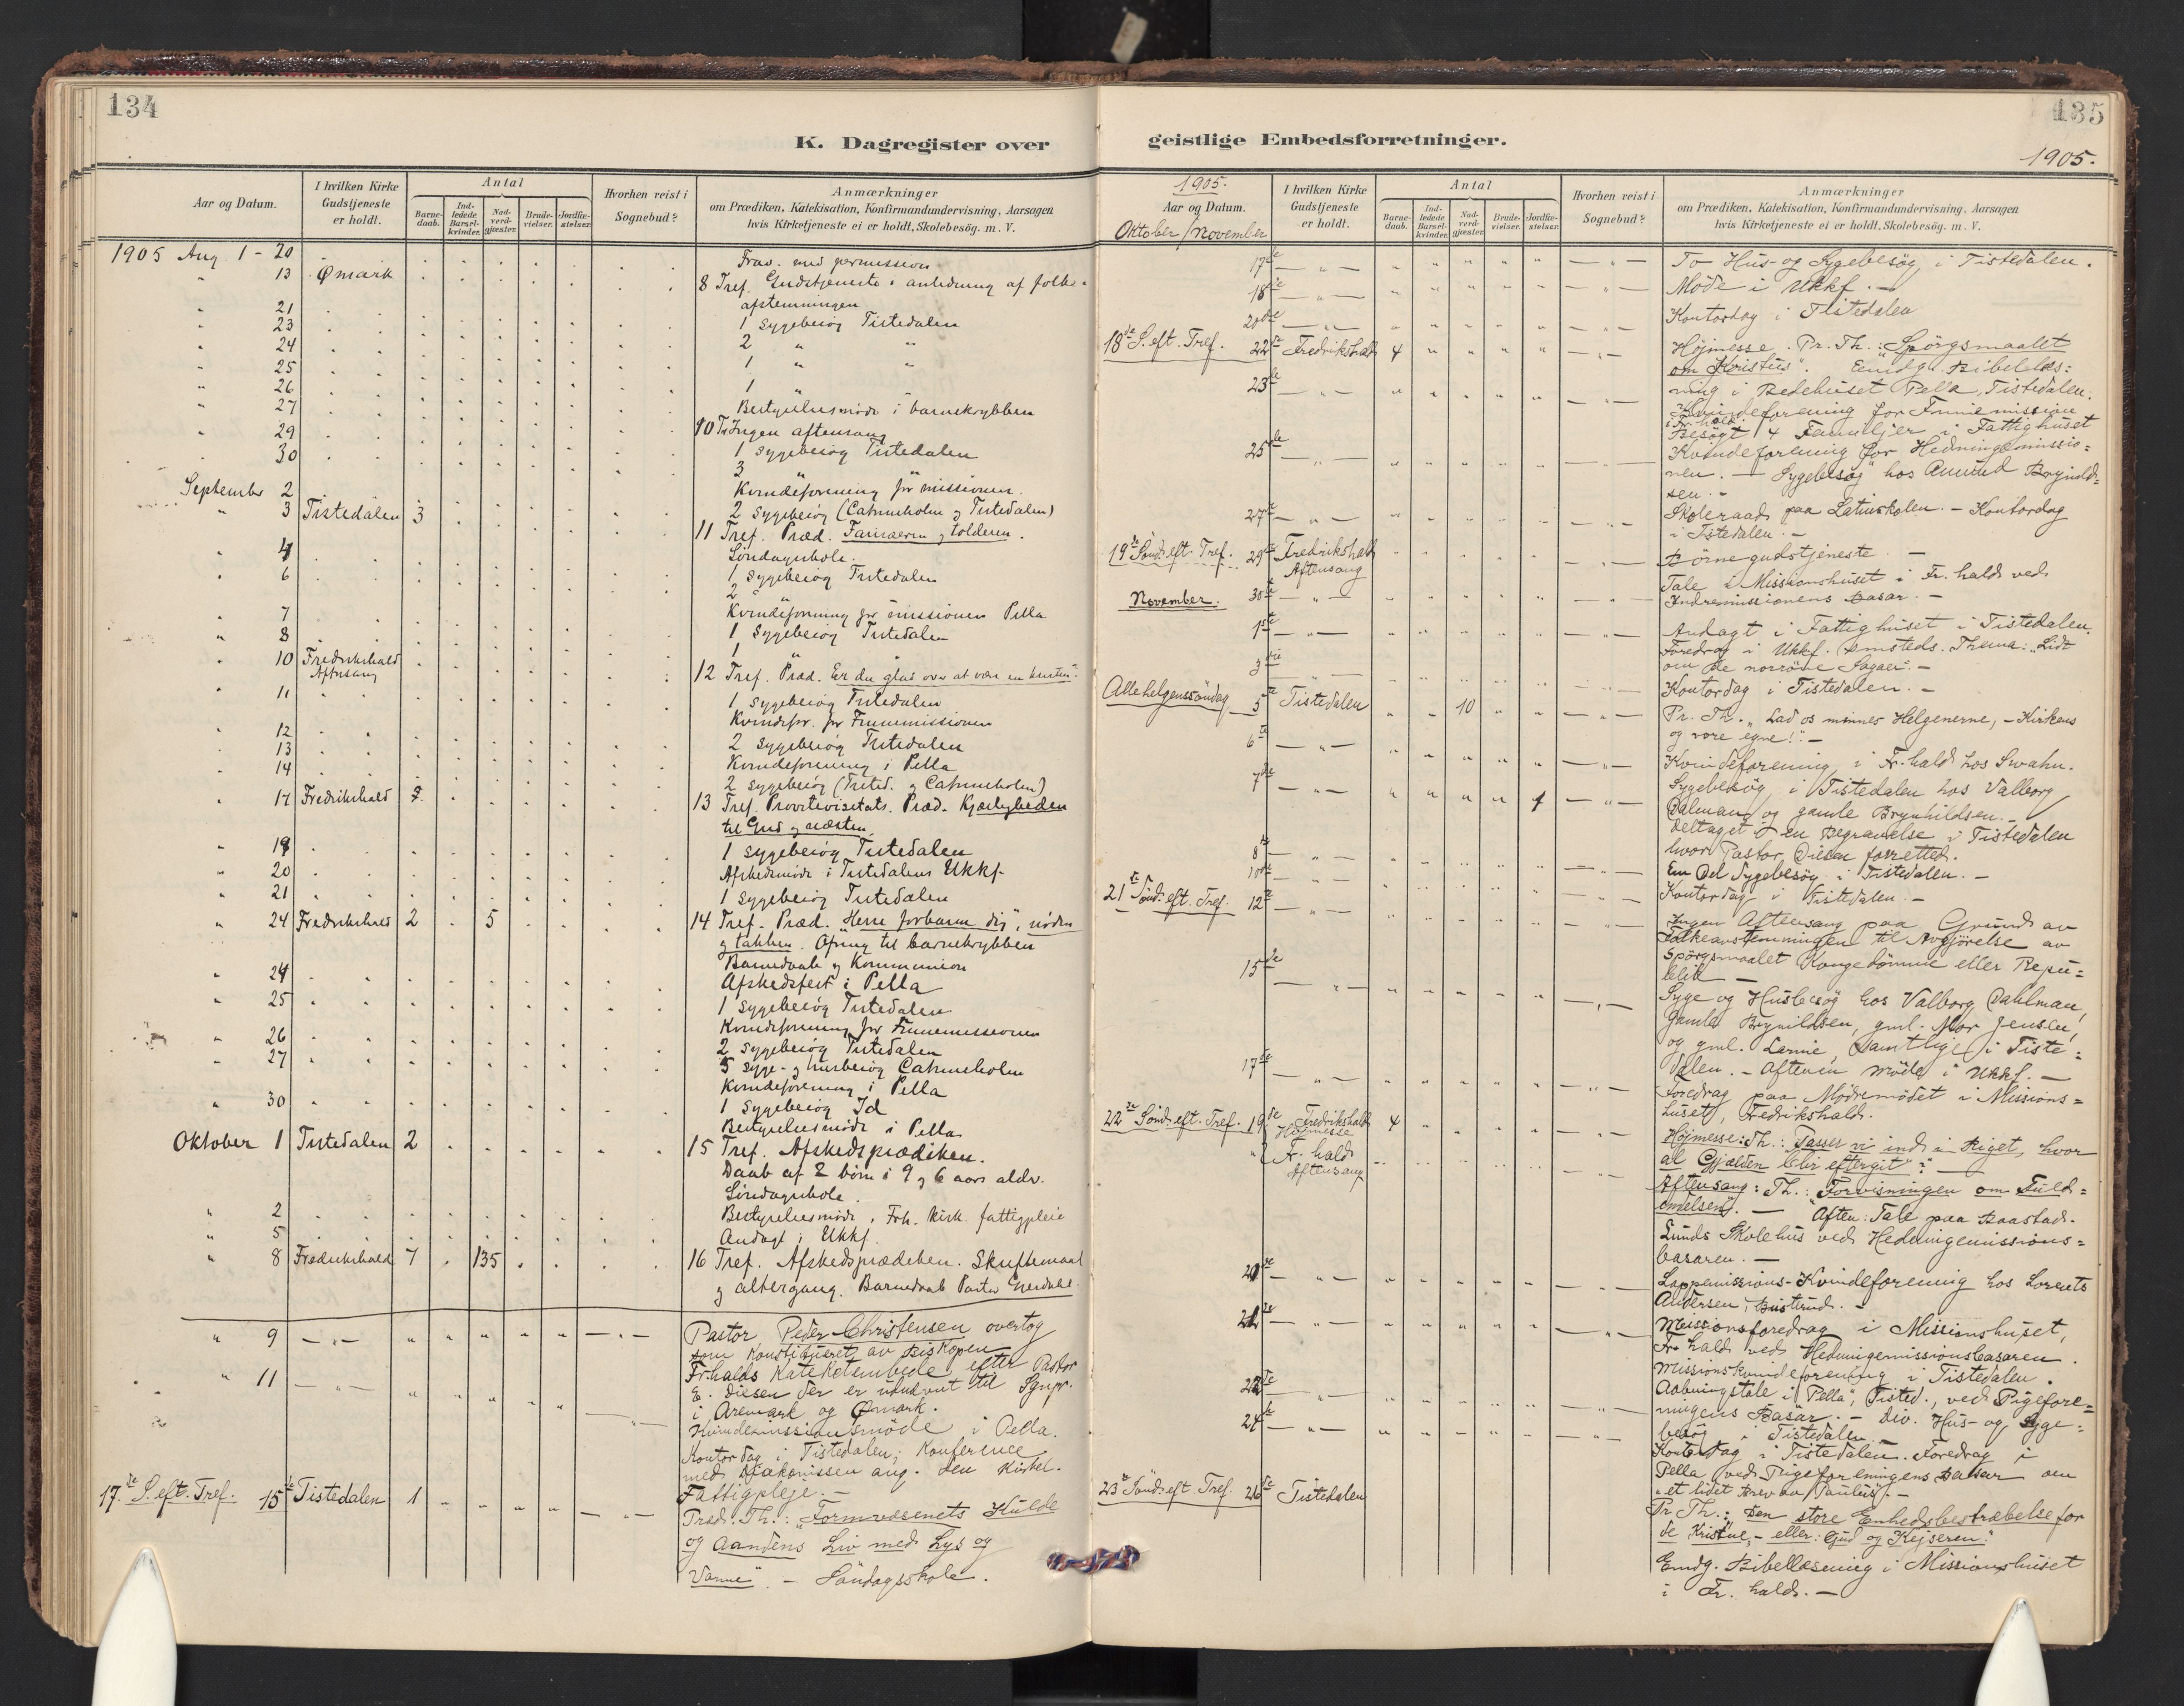 134
K. Dagregister over
Aar og Datum.
I hvilken Kirke
Gudstjeneste
er holdt.
Antal
Barne-
daab.
Ind-
ledede
Barsel-
kvinder.
Nad-
verd-
gjæster.
Brude-
vielser.
Jordfæ-
stelser.
Hvorhen reist i
Sognebud?
Anmærkninger
om Prædiken, Katekisation, Konfirmandundervisning, Aarsagen
hvis Kirketjeneste ei er holdt, Skolebesög. m. V.
1905 Aug. 1 - 20 Frav. med permission
" 13 Ømark 8 Tref. Gudstjeneste i anledning af folke-
afstemningen
" 21 1 sygebesög Tistedalen
" 23 2 " "
" 24 1 " "
" 25
" 26 1 "
" 27 Bestyrelsesmöde i barnekrybben
10 Tr Ingen aftensang
" 29 1 sygebesög Tistedalen
" 30 3 " "
September 2 Kvindeforening for missionen.
2 sygebesög (Catrineholm og Tistedalen)
" 3 Tistedalen 3 11 Tref. Præd. Farisæeren og tolderen.
Söndagsskole.
" 4 1 sygebesög Tistedalen
" 6 2 " "
Kvindeforening for missionen Pella
" 7 1 sygebesög Tistedalen
" 8 1 " "
" 10 Fredrikshald 12 Tref. Præd. Er du glad over at være en kristen?
Aftensang
" 11 1 sygebesög Tistedalen
Kvindefor. for Finnemissionen
" 12 2 sygebesög Tistedalen
" 13 Kvindeforening i Pella
" 14 2 sygebesög (Tisted. og Catrineholm)
" 17 Fredrikshald 13 Tref. Provstevisitats. Præd. Kjærligheden
til Gud og næsten.
" 19 1 sygebesög Tistedalen
" 20 Afskedsmöde i Tistedalens Ukkf.
" 21 1 sygebesög Tistedalen
" 24 Fredrikshald 2 5 14 Tref. Præd. "Herre forbarm dig", nöden
og takken. Ofring til barnekrybben
Barnedaab og Kommunion
" 24 Afskedsfest i Pella
" 25 1 sygebesög Tistedalen
Kvindeforening for Finnemissionen
" 26 2 sygebesög Tistedalen
" 27 5 syge- og husbesög Catrineholm
Kvindeforening i Pella
" 30 1 sygebesög Id
Bestyrelsesmöde i Pella
Oktober 1 Tistedalen 2 15 Tref. Afskedsprædiken.
Daab af 2 börn i 9 og 6 aars alder.
Söndagsskole.
" 2 Bestyrelsesmöde, Frh. kirk. fattigpleie
" 5 Andagt i Ukkf.
" 8 Fredrikshald 7 135 16 Tref. Afskedsprædiken. Skriftemaal
og altergang. Barnedaab Pastor
" 9 Pastor Peder Christensen overtog
som Konstitueret av Biskopen
Fr.halds Kateketembede efter Pastor
" 11 E. Diesen der er utnævnt til Sgnpr.
i Aremark og Ømark.
Kvindemissionsmöde i Pella.
Kontordag i Tistedalen; Konference
med Diakonissen ang. den Kirkel.
Fattigpleje. -
17.de S. eft. Tref. 15de Tistedalen 1 Præd. Th.: "Formvæsenets Kulde
og Aandens Liv med Lys og
Varme". - Söndagsskole.
135
geistlige Embedsforretninger.
1905.
1905.
Aar og Datum.
Oktober/November
I hvilken Kirke
Gudstjeneste
er holdt.
Antal
Barne-
daab.
Ind-
ledede
Barsel-
kvinder.
Nad-
verd-
gjæster.
Brude-
vielser.
Jordfæ-
stelser.
Hvorhen reist i
Sognebud?
Anmærkninger
om Prædiken, Katekisation, Konfirmandundervisning, Aarsagen
hvis Kirketjeneste ei er holdt, Skolebesög. m. V.
17de To Hus- og Sygebesög i Tistedalen.
18de Möde i Ukkf. -
20de Kontordag i Tistedalen
18de S. eft. Tref. 22de Fredrikshald 4 Höjmesse. Pr. Th.: "Spörgsmaalet
om Kristus". Emdg. Bibellæs:
ning i Bedehuset Pella, Tistedalen.
23de Kvindeforening for Finnemission
i Fr.hald.
Besögt 4 Familjer i Fattighuset
25de Kvindeforening for Hedningemissio:
nen. - Sygebesög hos Amund Brynild:
sen. -
27de Skoleraad paa Latinskolen. - Kontordag
i Tistedalen. -
19de Sönd. eft. Tref. 29de Fredrikshald Börnegudstjeneste. -
Aftensang
Tale i Missionshuset i Fr.hald ved
November. 30te Indremissionens Basar. -
1ste Andagt i Fattighuset i Tistedalen.
Foredrag i Ukkf. Thema: "Lidt
om de norröne Sagaer". -
3die Kontordag i Tistedalen. -
Allehelgenssöndag 5te Tistedalen 10 Pr. Th. "Lad os mindes Helgenerne, - Kirkens
og vore egne!". -
6te Kvindeforening i Fr.hald hos Svahn.
7de 1 Sygebesög i Tistedalen hos Valborg
Dalman og gamle Brynhildsen. -
deltaget i en Begravelse i Tistedalen
hvor Pastor Diesen forrettet.
8de En Del Sygebesög i Tistedalen. -
10de Kontordag i Tistedalen. -
21de Sönd. eft. Tref. 12te Ingen Aftensang paa Grund av
Folkeavstemningen til Avgjörelse av
Spörgsmaalet Kongedömme eller Repu:
blik -
15de Syge og Husbesög hos Valborg Dahlman,
Gamle Brynildsen, gml. Mor Jensen,
og gml. Larine, samtlige i Tiste:
dalen. - Aftenen möde i Ukkf. -
17de Foredrag paa Mödremödet i Missions:
huset, Fredrikshald.
22de Sönd. eft. Tref. 19de Fredrikshald 4 Höjmesse: Th.: "Passer vi ind i Riget, hvor
Höjmesse
al Gjælden blir eftergit"? -
" Fr.hald Aftensang: Th.: "Forvisningen om Fuld:
Aftensang
endelsen". - Aften: Tale paa Baastad-
Lunds Skolehus ved Hedningemissions:
basaren. -
20de Lappemissions-Kvindeforening hos Lorents
Andersen, Busterud. -
21de Missionsforedrag i Missionshuset,
Fr.hald ved Hedningemissionsbasaren.
Missionskvindeforening i Tistedalen.
22de Aabningstale i "Pella", Tisted., ved Pigefore:
ningens Basar. - Div. Hus- og Syge:
besög i Tistedalen. -
24de Kontordag i Tistedalen. Foredrag i
Pella ved Pigeforeningens Basar om
"et lidet Brev av Paulus". -
23de Sönd. eft. Tref. 26de Tistedalen Pr. Th.: "Den store Enhedsbestræbelse for
de Kristne, - eller: Gud og Kejseren."
Emdg. Bibellæsning i Missionshuset
i Fr.hald. -